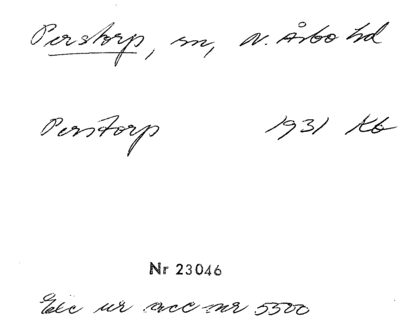 Perstorp, sn, N. Åsbo hd
Perstorp 1931 Kb
Nr 23046
Exc ur acc nr 5500